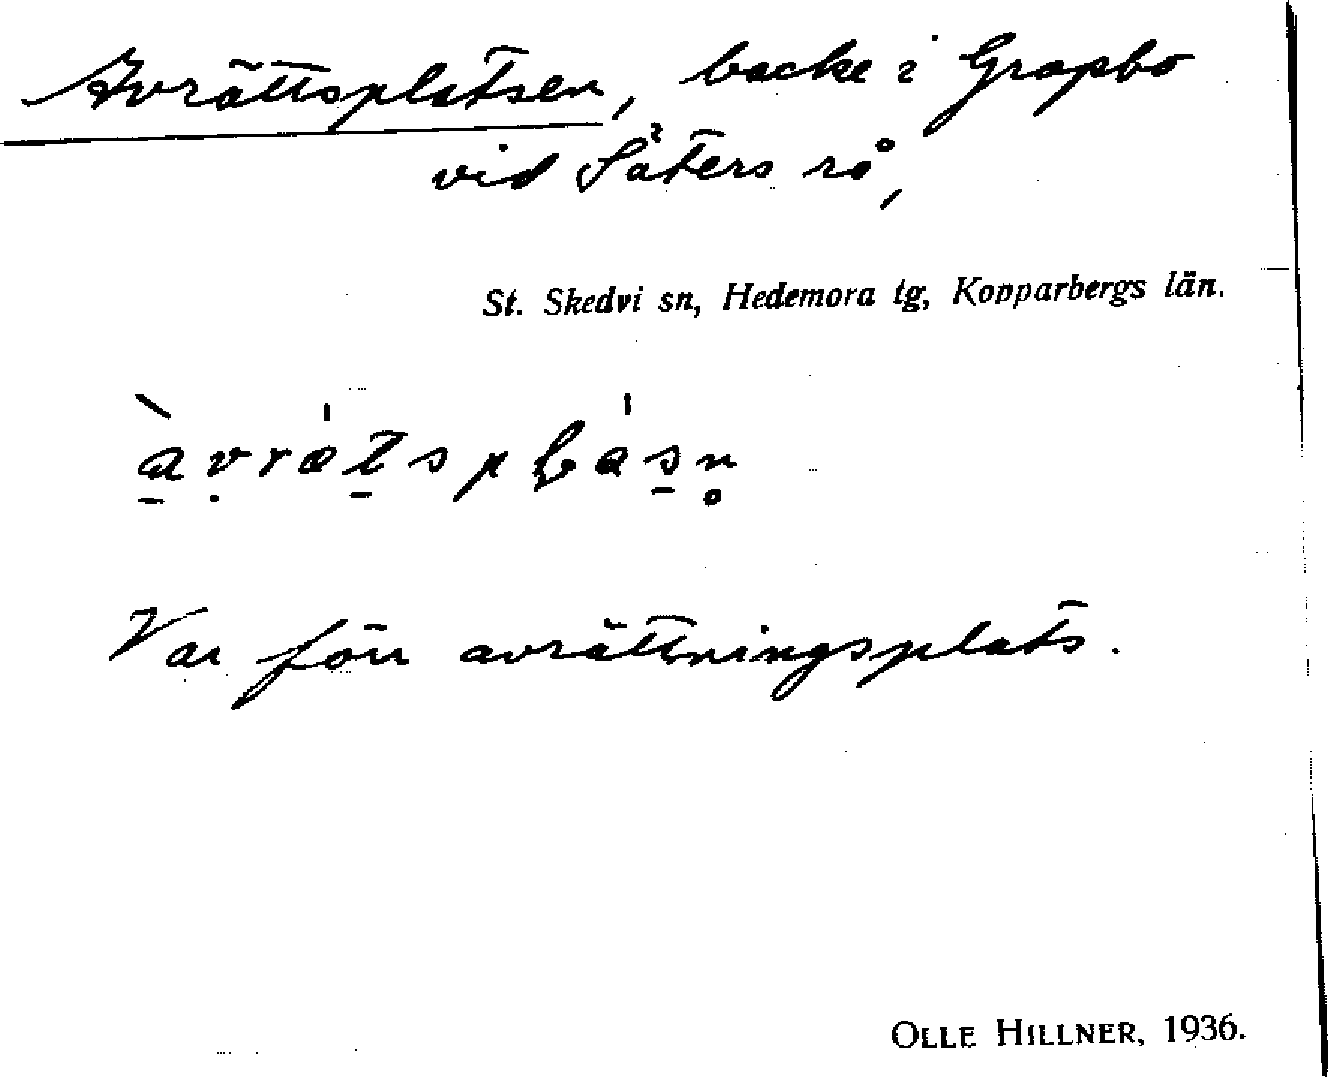 Avrättsplatsen, backe i Grapbo
vid Säters rå,
St. Skedvi sn, Hedemora tg, Kopparbergs län.
Var förr avrättningsplats.
OLLE HILLNER, 1936.